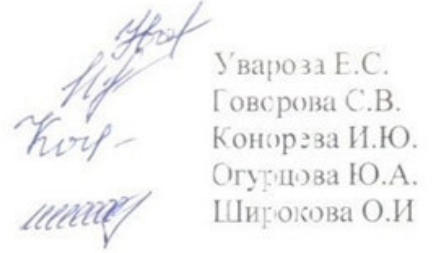 Уварова Е.С.
Говорова С.В.
Конорева И.Ю.
Огурцова Ю.А.
Широкова О.И